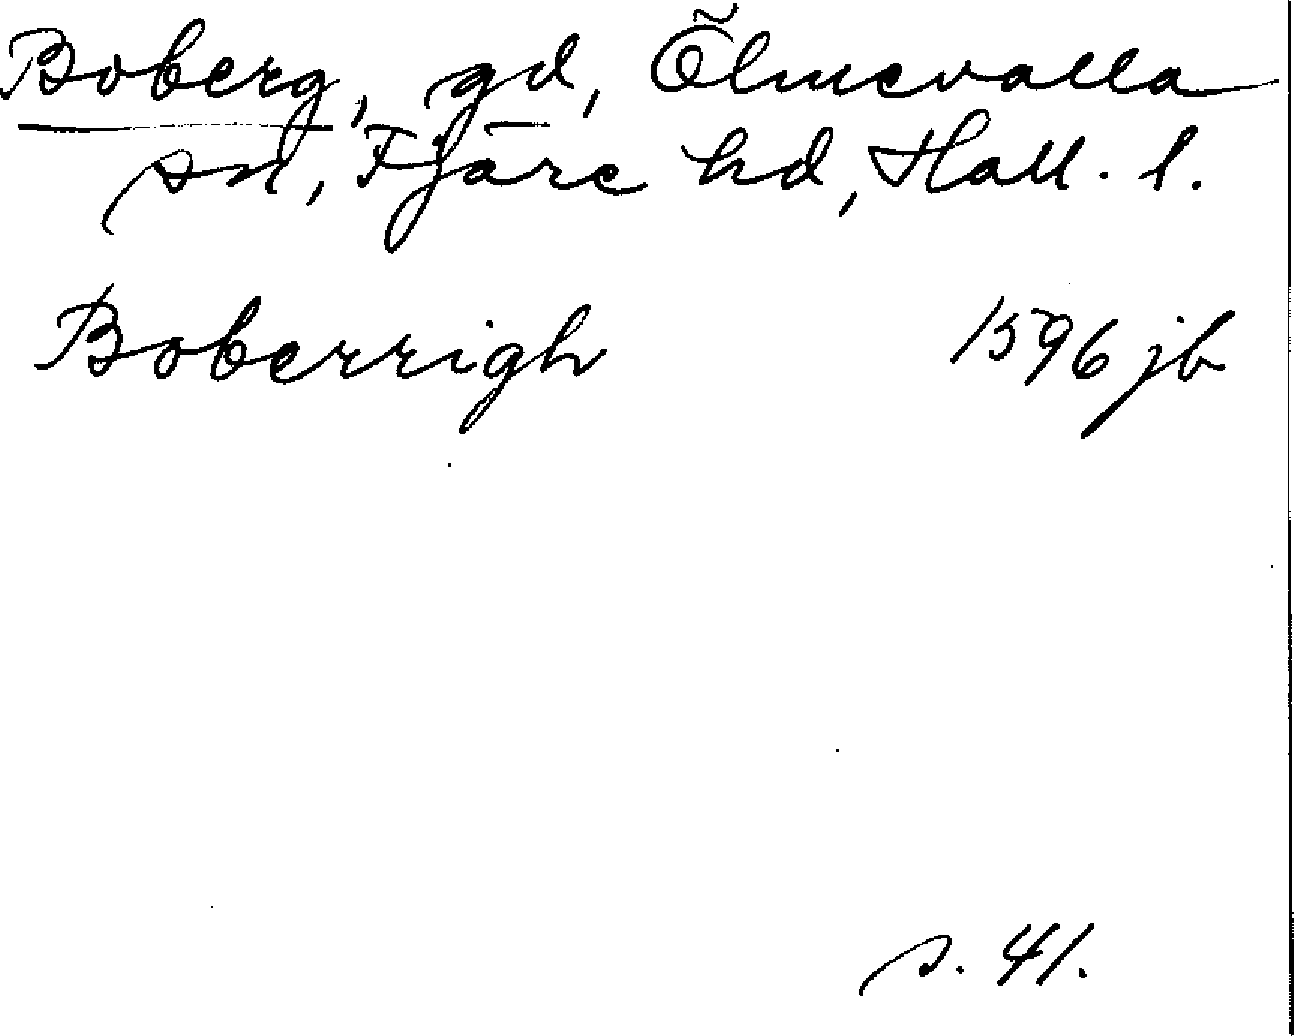 Boberg, gd, Ölmevalla
sn, Fjäre hd, Hall. l.
Boberrigh 1596 jb
s. 41.